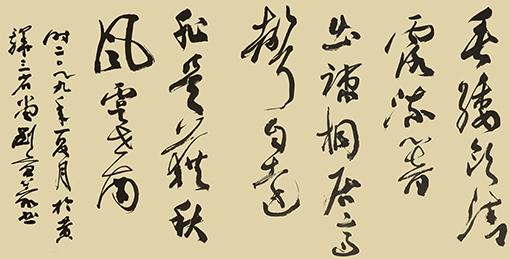 垂緌飲清
露流響
出疏桐居高
聲自遠
非是藉秋
風虞世南
时二〇一九年夏月於黄
三石尚